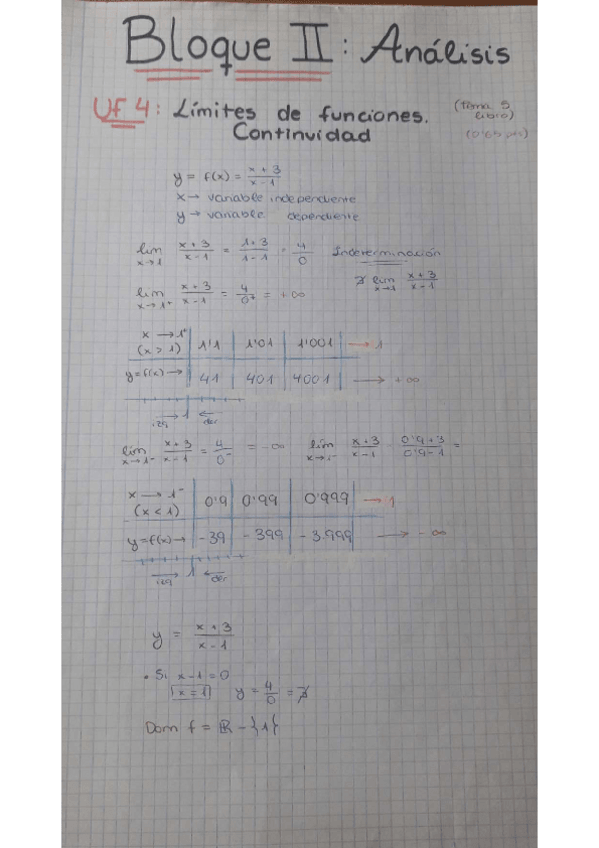 Bloque II: Análisis
UF 4: Límites de funciones. (tema 5 libro)
Continuidad (0'65 pts)
y = f(x) = x+3 / x-1
x → variable independiente
y → variable dependiente
lim x→1 x+3 / x-1 = 1+3 / 1-1 = 4/0 Indeterminación
∄ lim x→1 x+3 / x-1
lim x→1+ x+3 / x-1 = 4/0+ = +∞
x → 1+ (x > 1) 1'1 1'01 1'001 → 1
y = f(x) → 41 401 4001 → +∞
→ 1 ←
izq der
lim x→1- x+3 / x-1 = 4/0- = -∞ lim x→1- x+3 / x-1 0'9+3 / 0'9-1 =
x → 1- (x < 1) 0'9 0'99 0'999 → 1
y = f(x) → -39 -399 -3.999 → -∞
→ 1 ←
izq der
y = x+3 / x-1
• Si x-1=0
x=1 y = 4/0 = ∄
Dom f = ℝ - {1}